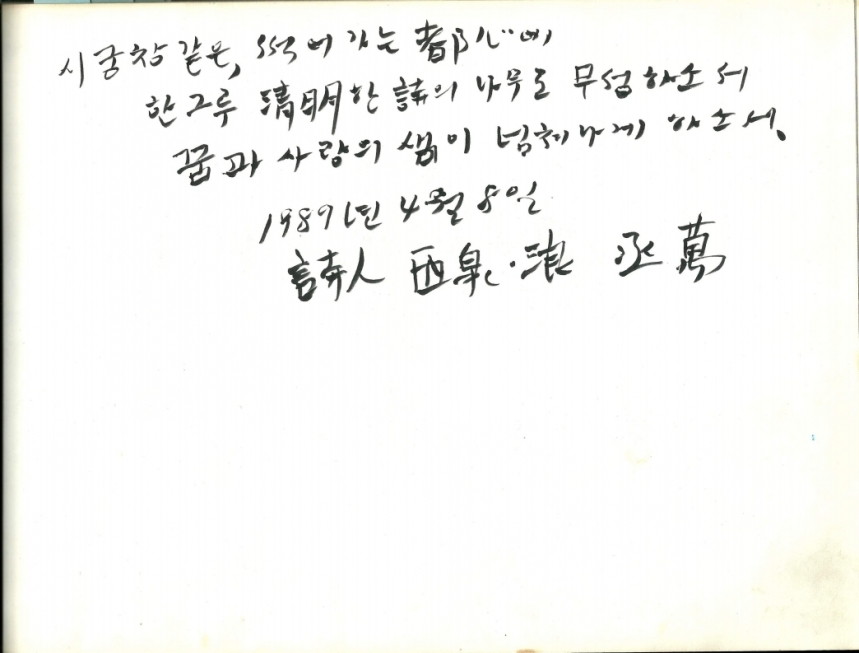 시궁창 같은, 썩어 가는 都心에
한 그루 淸明한 詩의 나무로 무성하소서
꿈과 사랑의 샘이 넘쳐나게 하소서.
1989년 4월 8일
詩人 西泉·浪 丞萬